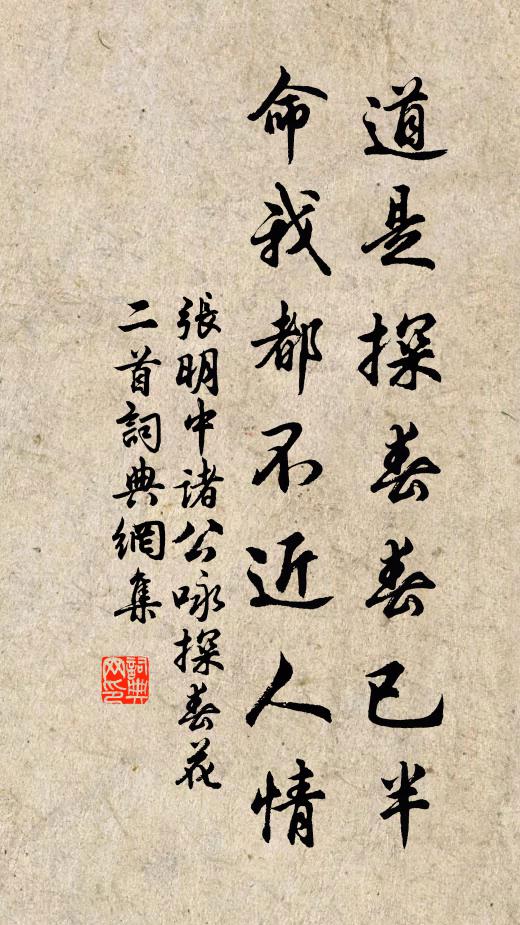 道是探春春已半
命我都不近人情
張明中諸公咏探春花
二首詞典網集
詞典網印